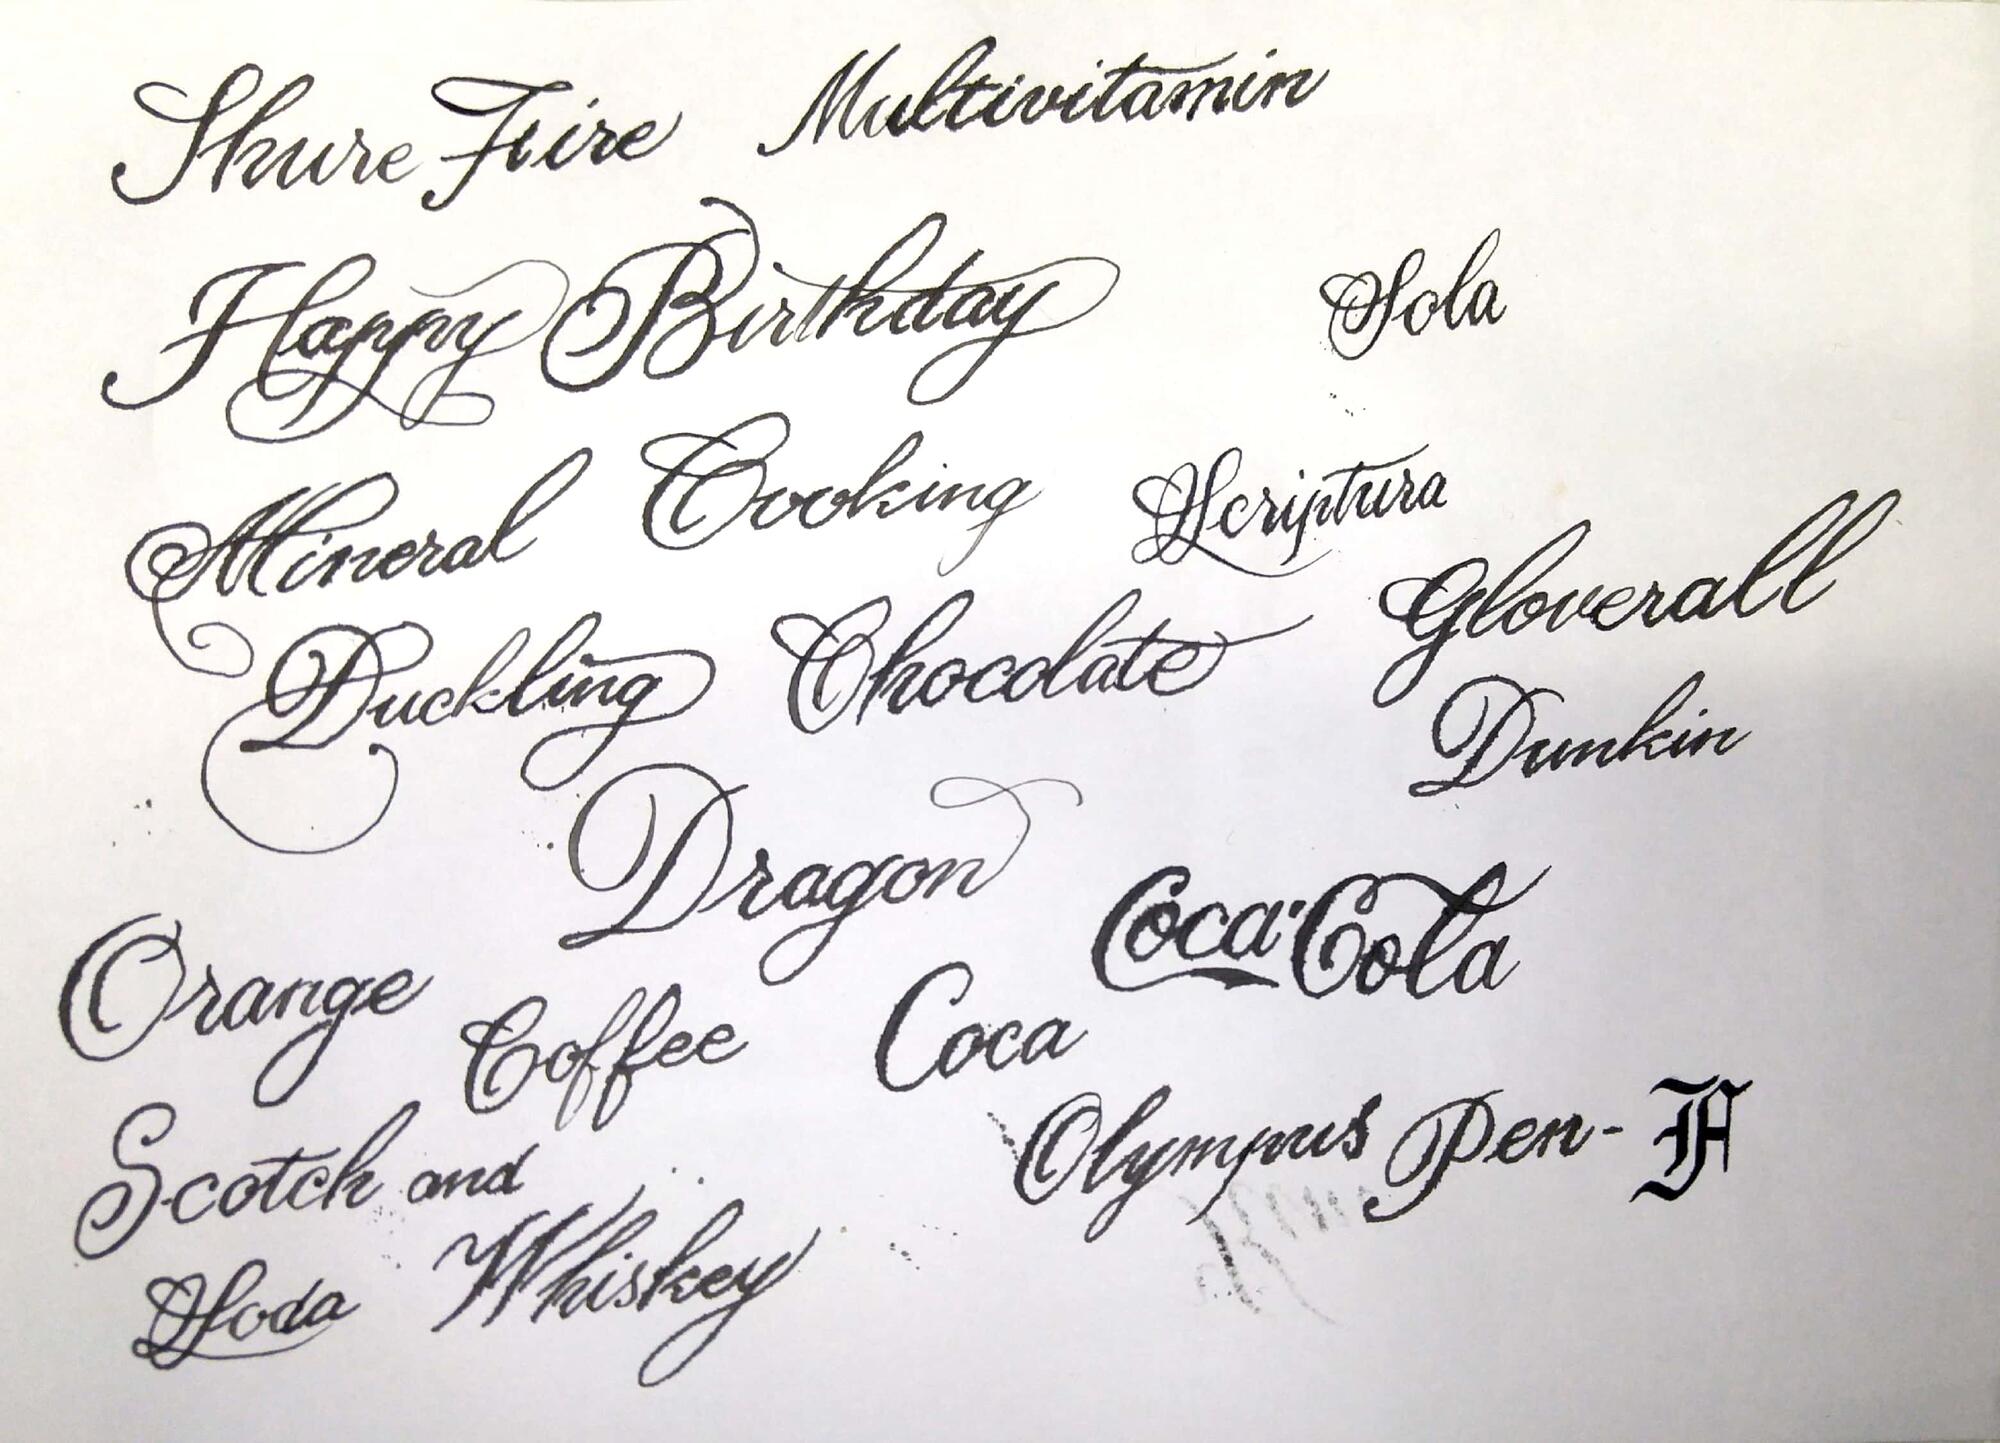 Shure Fire Multivitamin
Happy Birthday Sola
Mineral Cooking Scriptura
Gloverall
Duckling Chocolate
Dunkin
Dragon
Coca-Cola
Orange Coffee Coca
Olympus Pen-F
Scotch and
Soda Whiskey